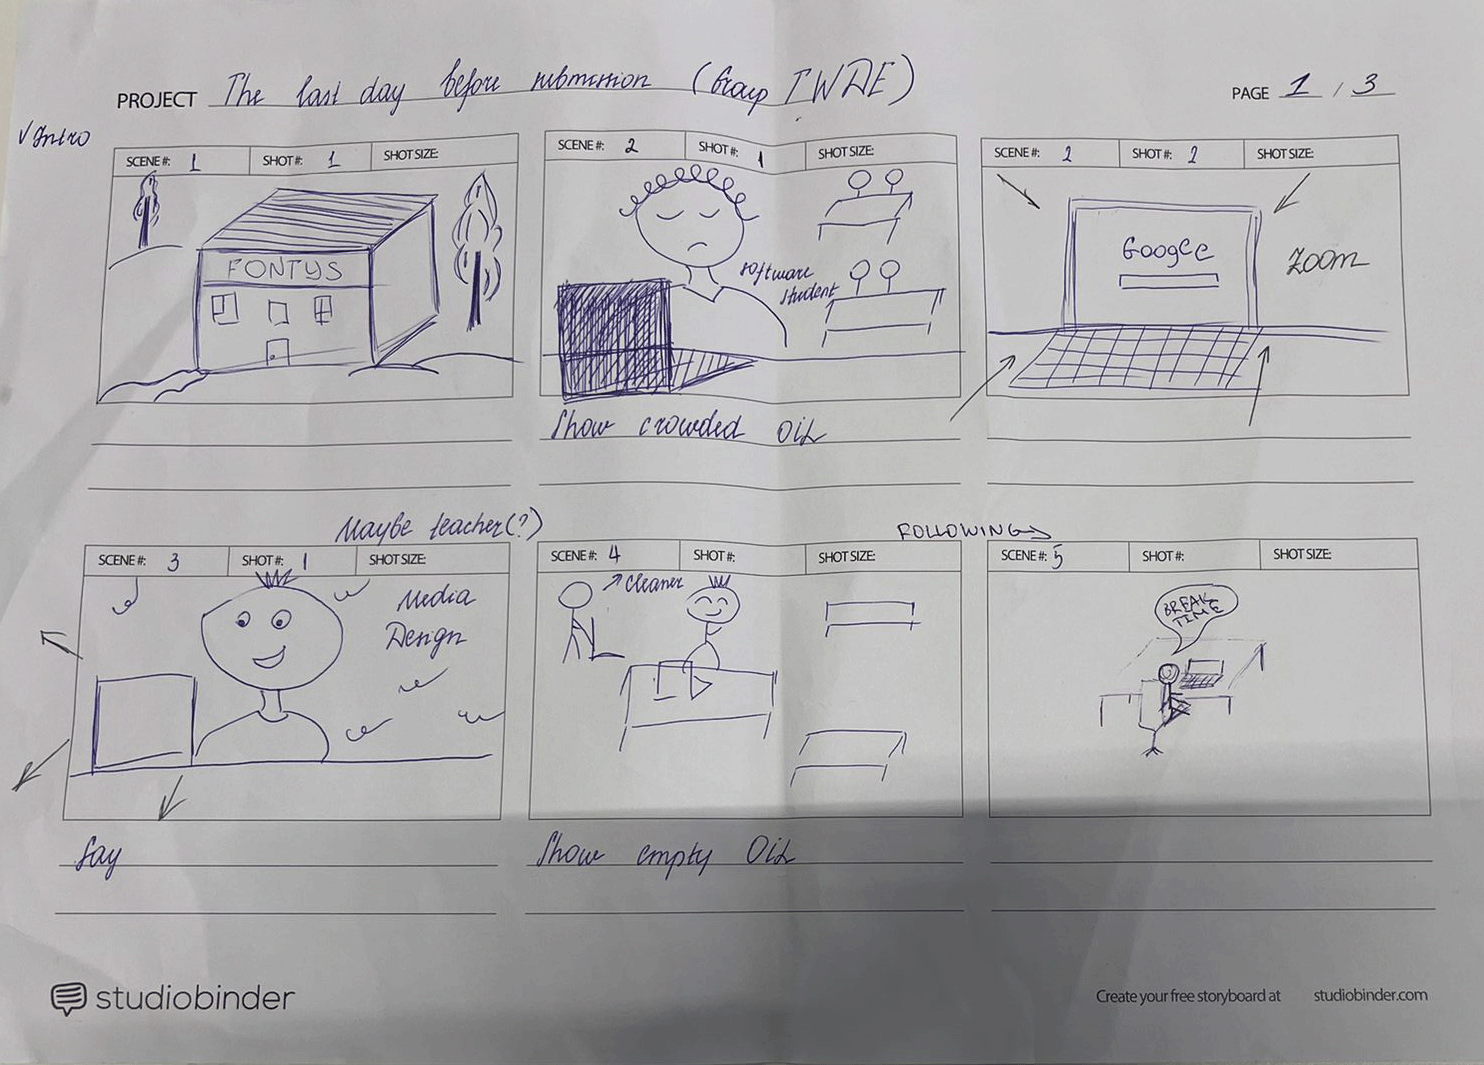 PROJECT The last day before submission (Group IWDE)
PAGE 1 / 3
√ Intro
SCENE #: 1 SHOT #: 1 SHOT SIZE:
FONTYS
SCENE #: 2 SHOT #: 1 SHOT SIZE:
software
student
Show crowded OIL
SCENE #: 2 SHOT #: 2 SHOT SIZE:
Google
ZOOM
Maybe teacher(?)
SCENE #: 3 SHOT #: 1 SHOT SIZE:
Media
Design
Say
SCENE #: 4 SHOT #: SHOT SIZE:
Cleaner
Show empty OIL
FOLLOWING
SCENE #: 5 SHOT #: SHOT SIZE:
BREAK
TIME
studiobinder
Create your free storyboard at studiobinder.com